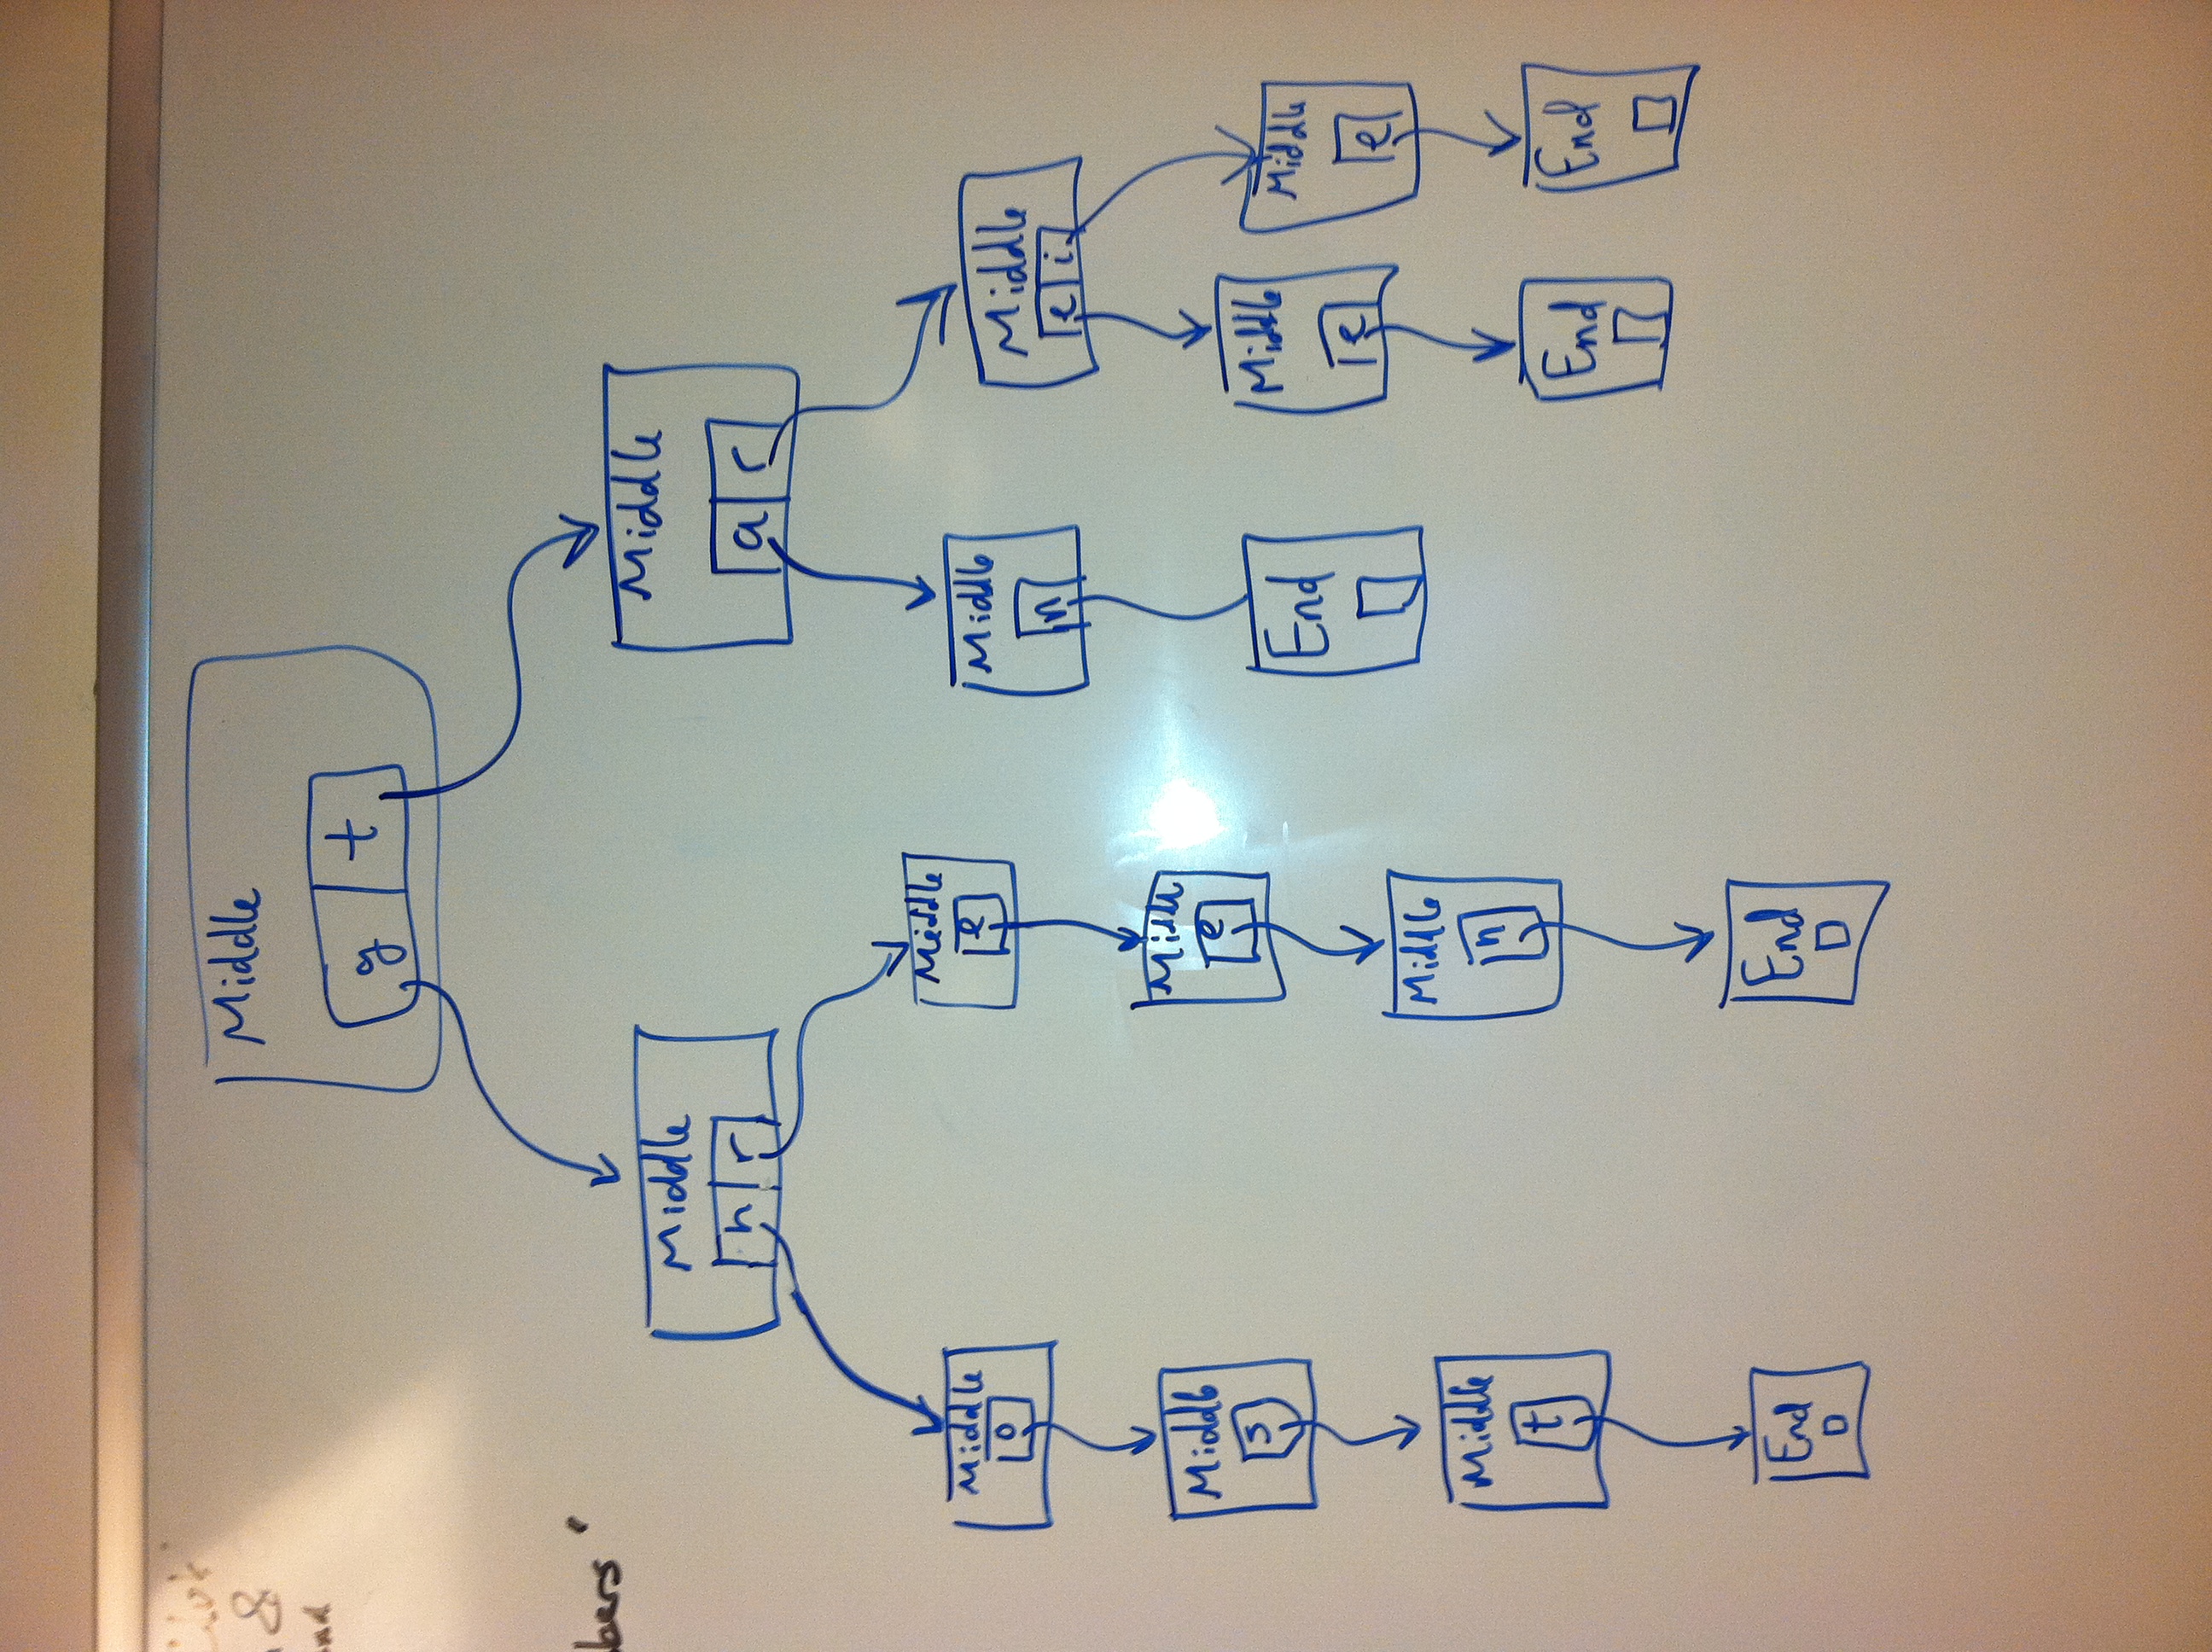 &
Middle
g t
Middle
h r
Middle
a r
Middle
e
Middle
o
Middle
n
Middle
e i
Middle
e
Middle
s
End
Middle
e
Middle
e
Middle
n
Middle
t
End
End
End
End